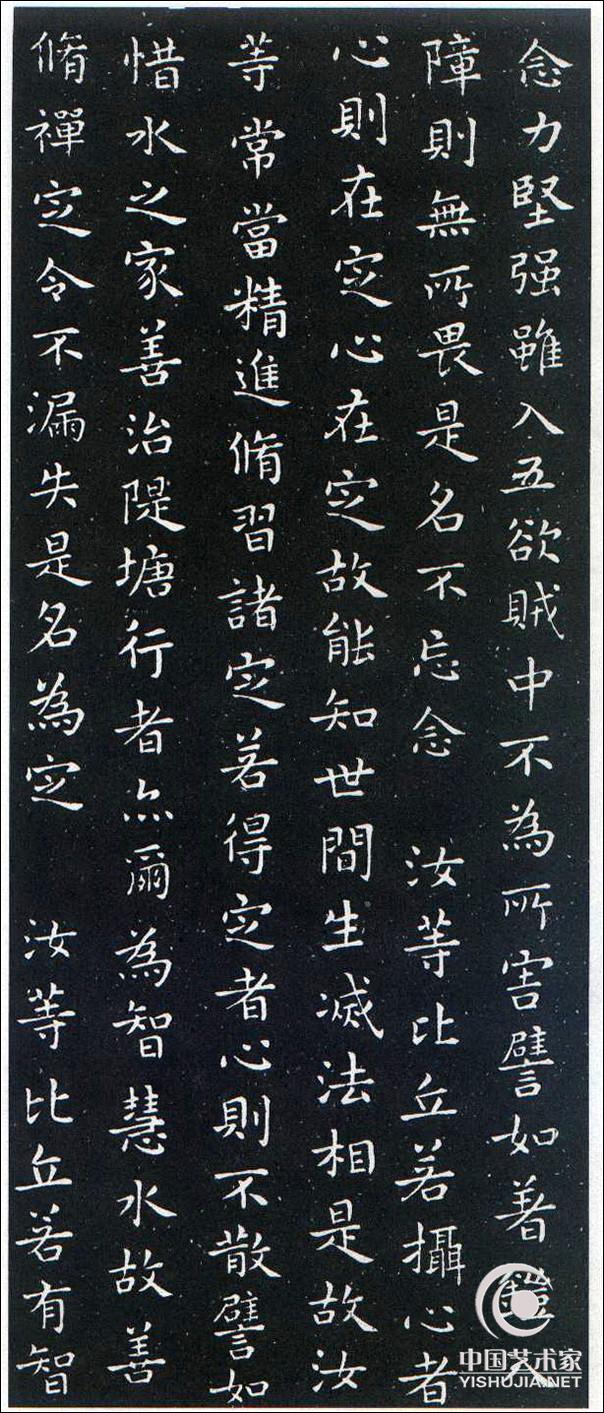 念力堅强雖入五欲賊中不為所害譬如著鎧入
障則無所畏是名不忘念　汝等比丘若攝心者
心則在定心在定故能知世間生滅法相是故汝
等常當精進脩習諸定若得定者心則不散譬如
惜水之家善治隄塘行者亦爾為智慧水故善
脩禪定令不漏失是名為定　汝等比丘若有智
中国艺术家
YISHUJIA.NET